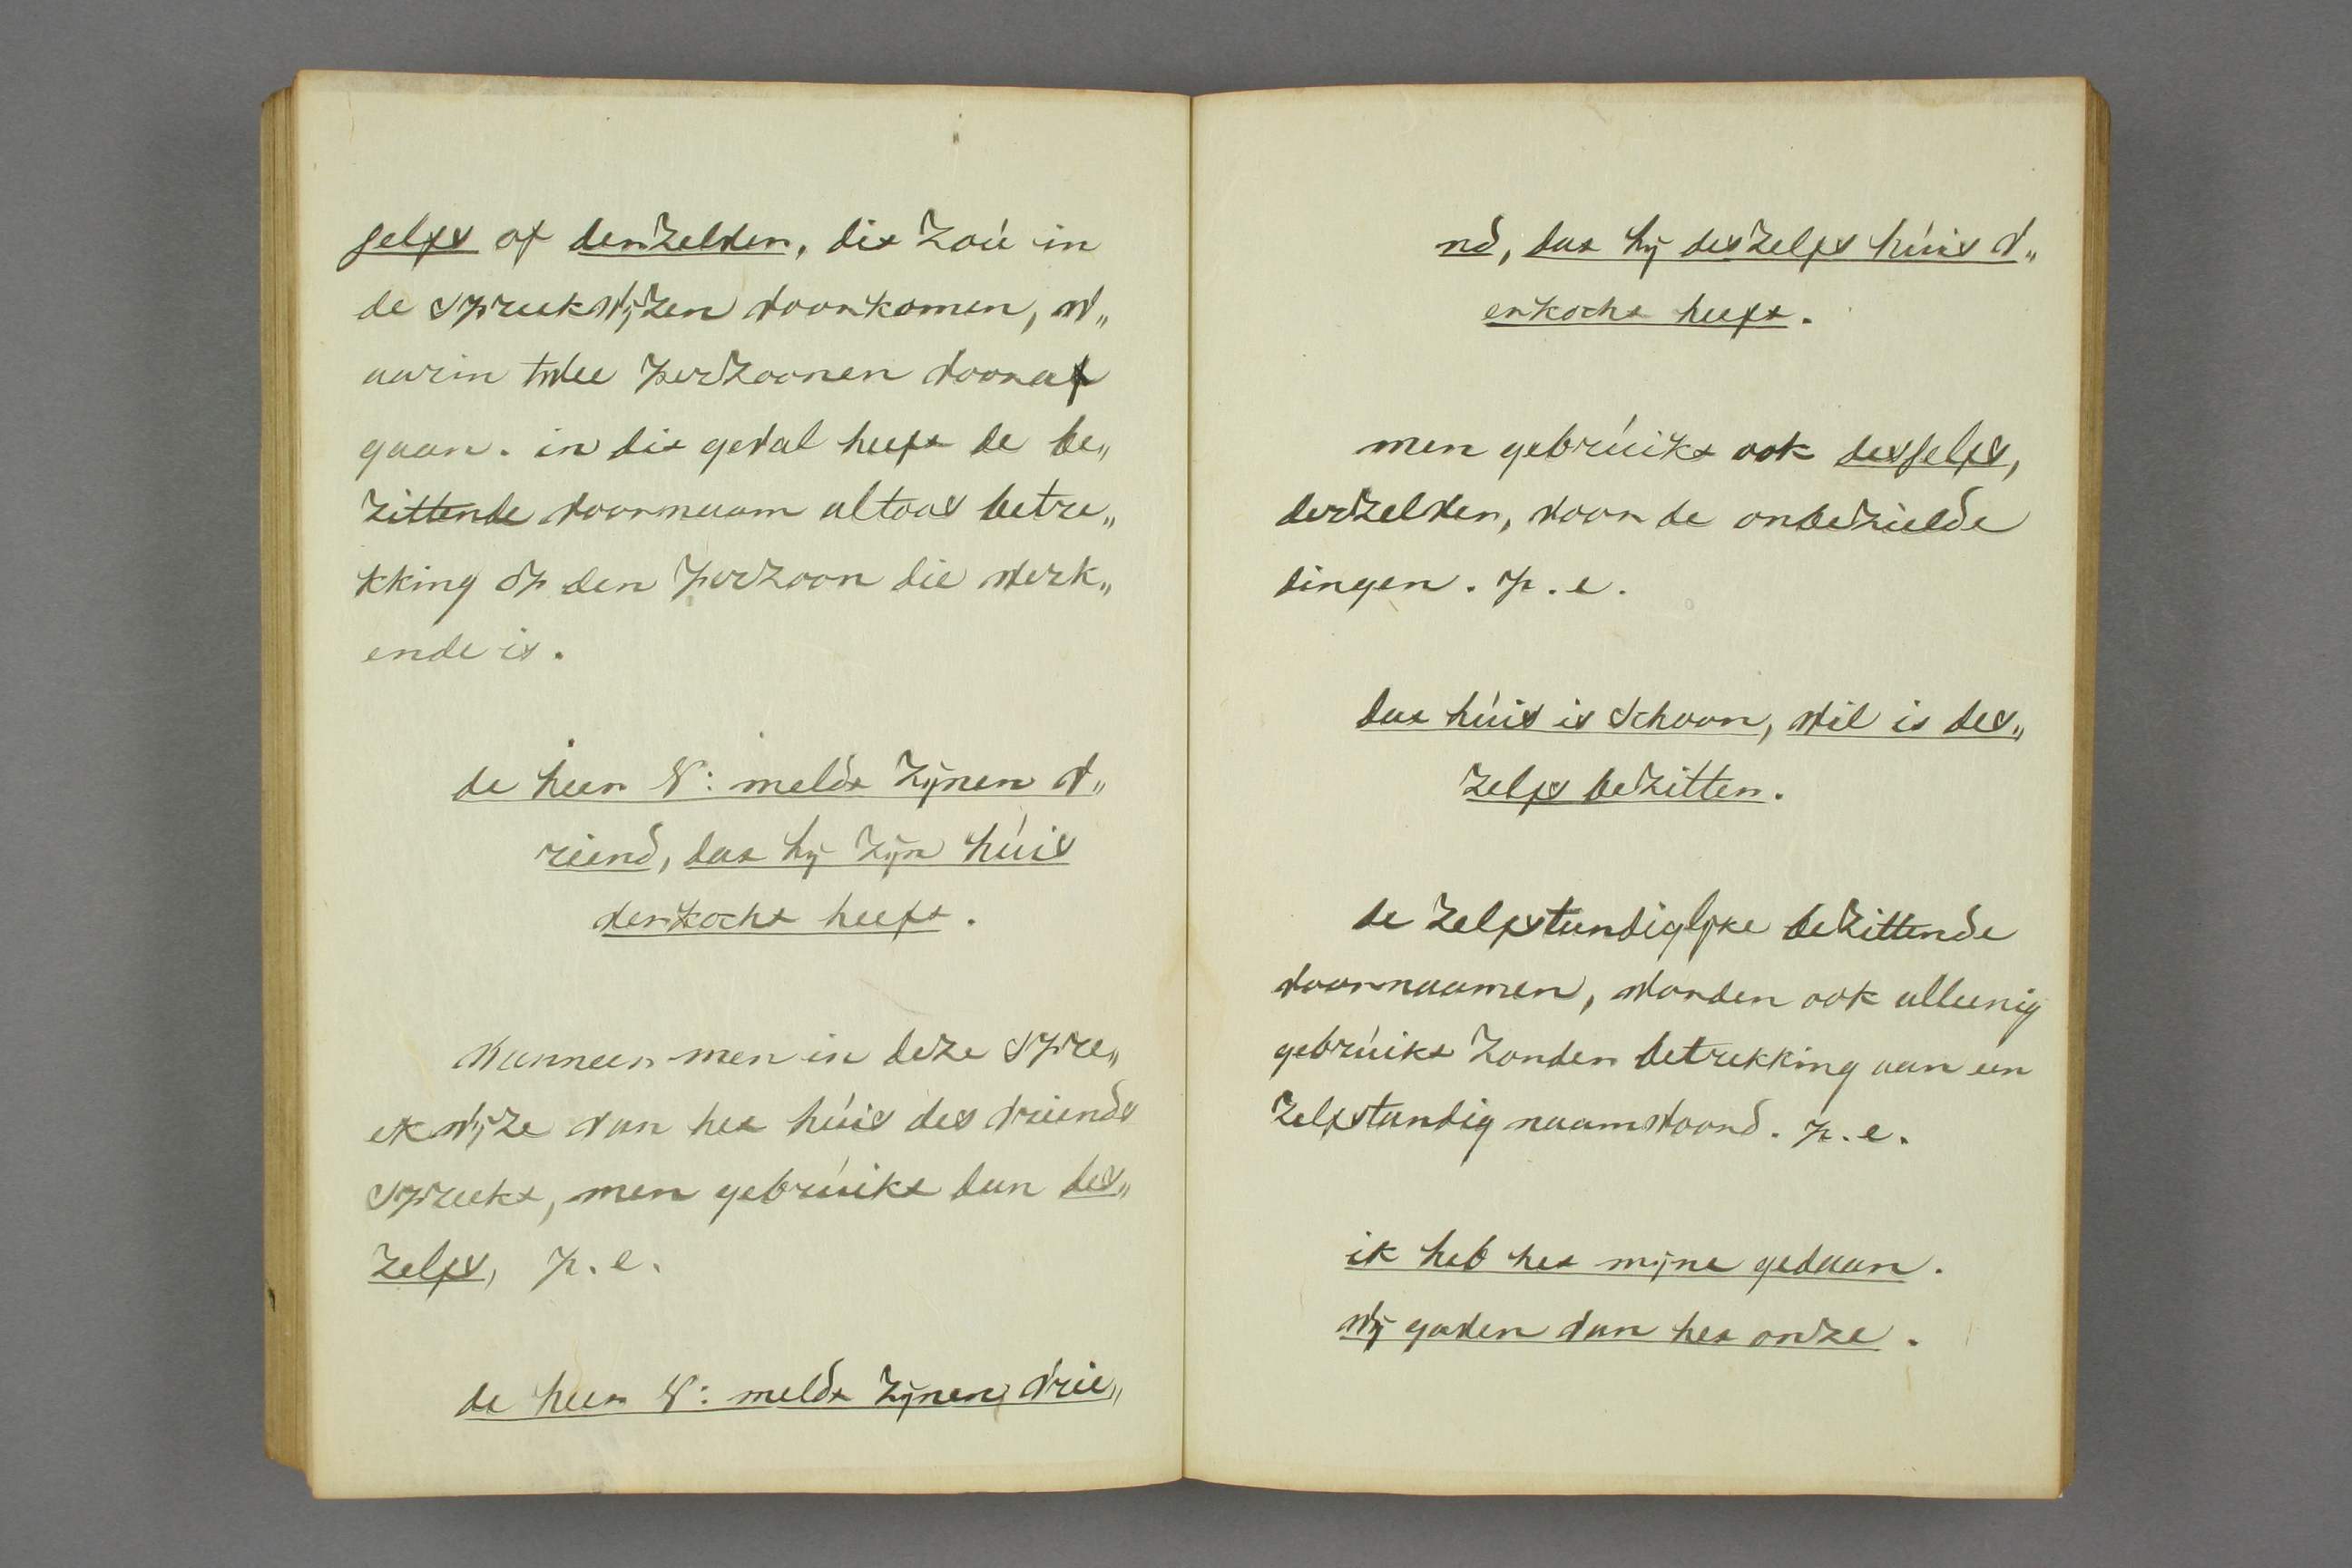 selfs of derzelven, dit zoú in
de spreekwijzen voorkomen, w„
aarin twee perzoonen vooraf
gaan. in dit geval heeft de be„
zittende voornaam altoos betre„
kking op den perzoon die werk„
ende is.
de heer N: meldt zijnen v„
riend, dat hij zijn húis
verkocht heeft.
wanneer men in deze spre„
ekwijze van het húis des vriends
spreekt, men gebrúikt dan des„
zelfs, p. e.
de heer N: meldt zijnen vrie„
nd, dat hij deszelfs húis v„
erkocht heeft.
men gebrúikt ook desselfs,
derzelver, voor de onbezielde
dingen. p. e.
dat húis is schoon, wil is des„
zelfs bezitten.
de zelfstandiglijke bezittende
voornaamen, worden ook alleenig
gebrúikt zonder betrekking aan een
zelfstandig naamwoord. p. e.
ik heb het mijne gedaan.
wij gaven van het onze.